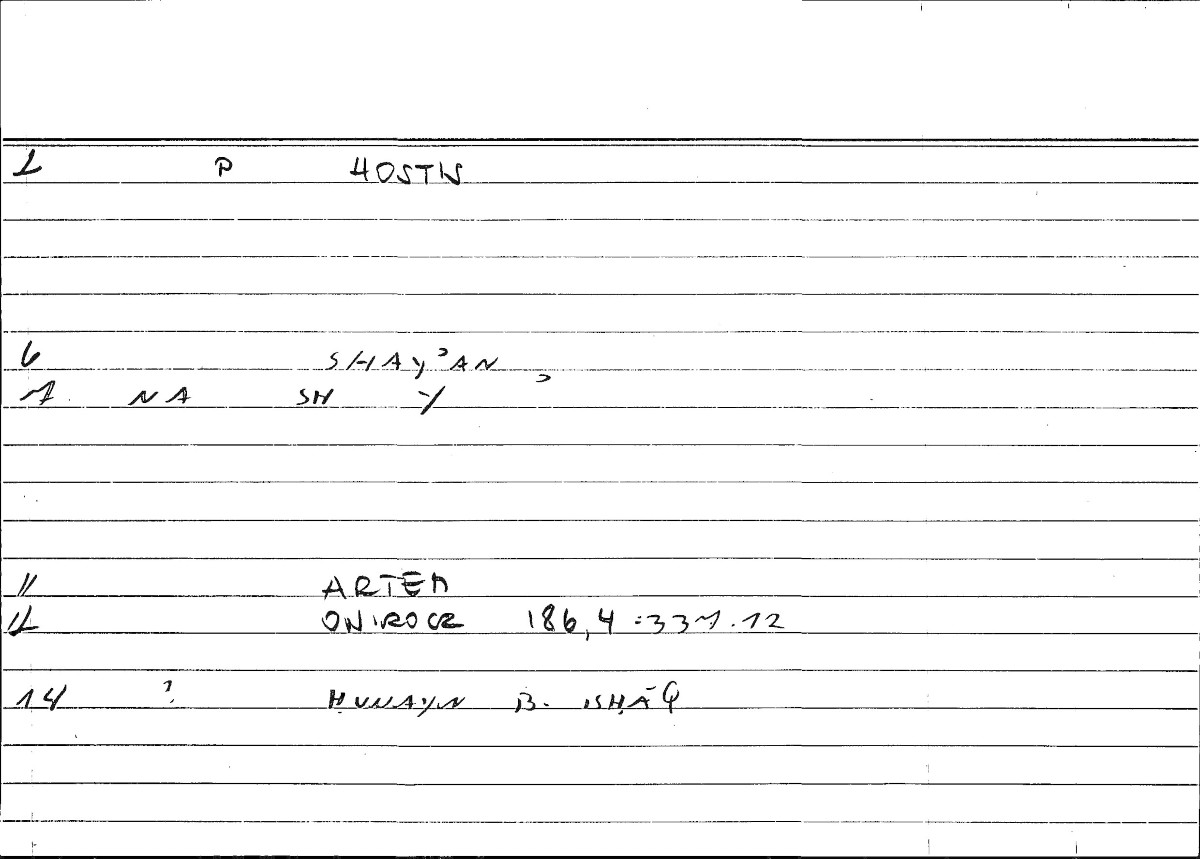 1 P HOSTIS
6 SHAYʾAN
7 NA SH Y ʾ
11 ARTEM
12 ONIROCR 186,4 :337.12
14 ? ḤUNAYN B. ISḤĀQ